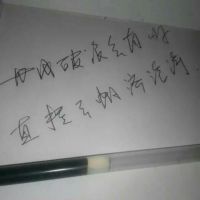 风破浪会有时
直挂云帆济沧海